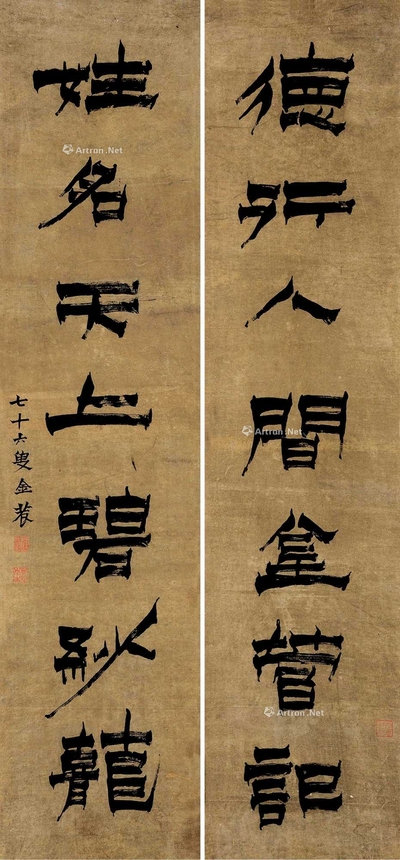 德行人間金管記
姓名天上碧紗籠
七十六叟金農
Artron.Net
Artron.Net
Artron.Net